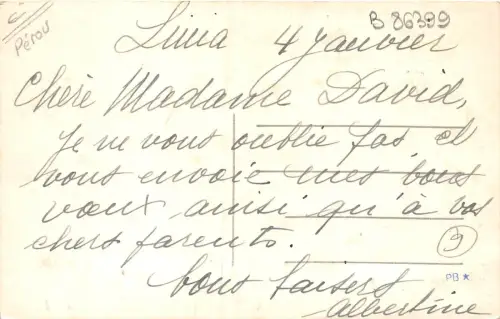 Pérou
B 86399
Lima 4 Janvier
Chère Madame David,
Je ne vous oublie pas et
vous envoie mes bons
vœux ainsi qu'à vos
chers parents.
9
bons baisers
PB ★
Albertine